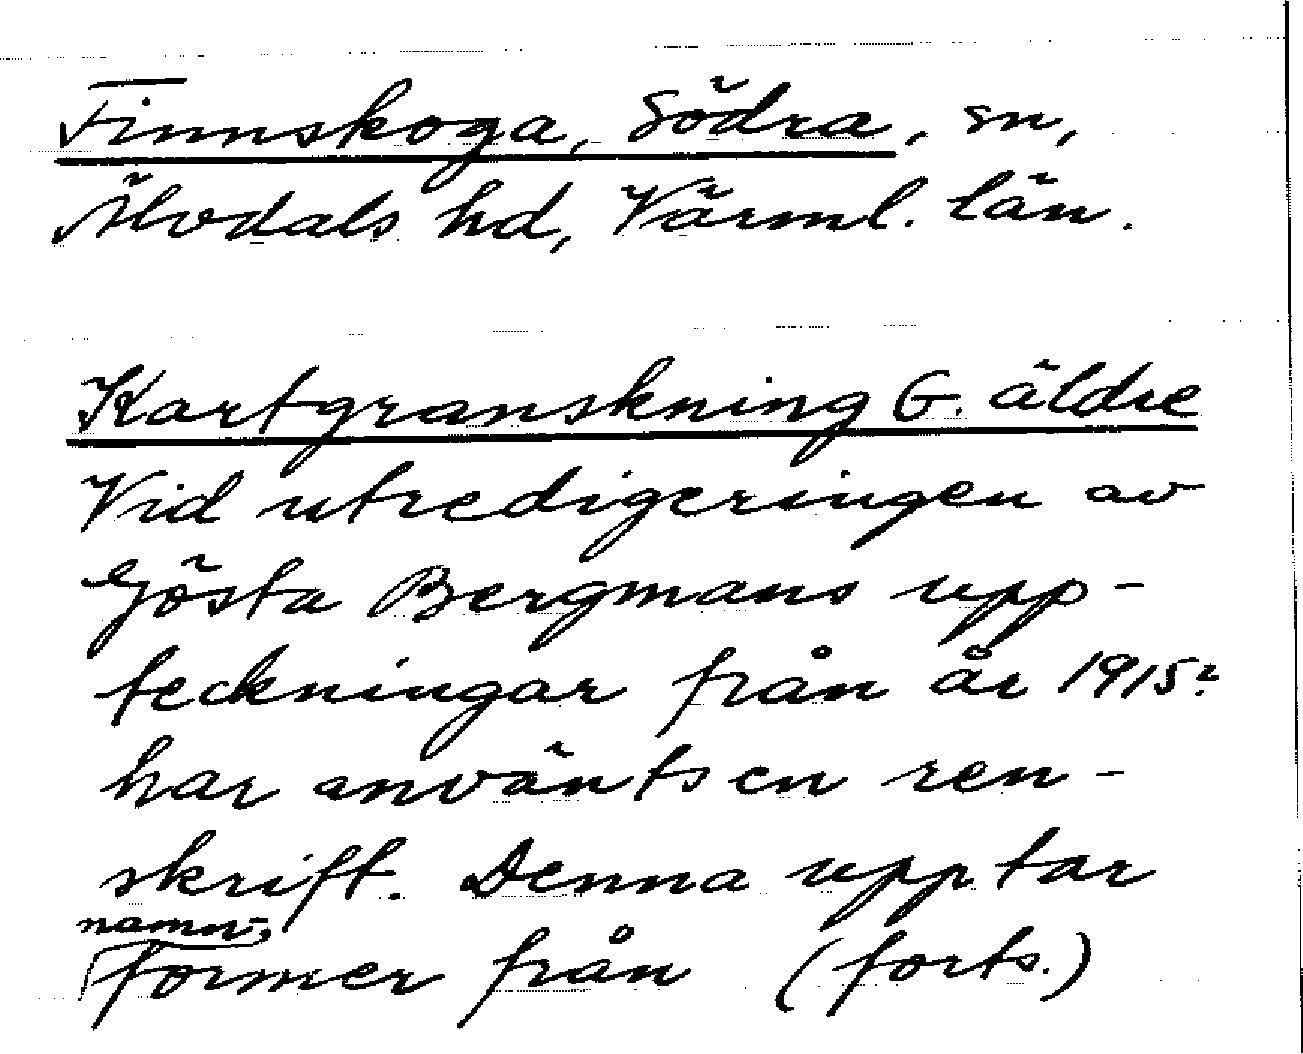 Finnskoga, Södra, sn,
Älvdals hd, Värml. län.
Kartgranskning G. äldre
Vid utredigeringen av
Gösta Bergmans upp-
teckningar från år 1915?
har använts en ren-
skrift. Denna upptar
namn-
former från (forts.)